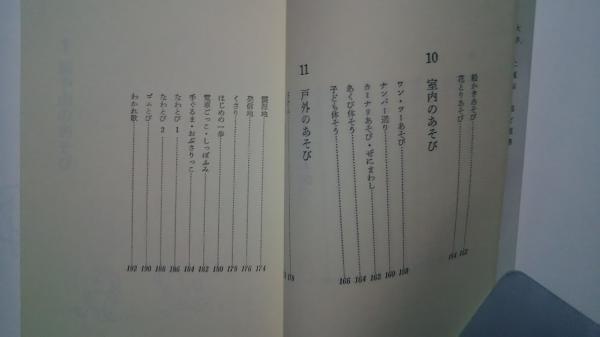 絵かきあそび 152
花とりあそび 154
10 室内のあそび
ワン・ツーあそび 158
ナンバー送り 160
カミナリあそび・ぜにまわし 162
あくび体そう 164
子ども体そう 166
11 戸外のあそび
陣屋地 174
発信地 176
くさり 178
はじめの一歩 180
電車ごっこ・しっぽふみ 182
手ぐるま・おぶさりっこ 184
なわとび 1 186
なわとび 2 188
ゴムとび 190
わかれ歌 192